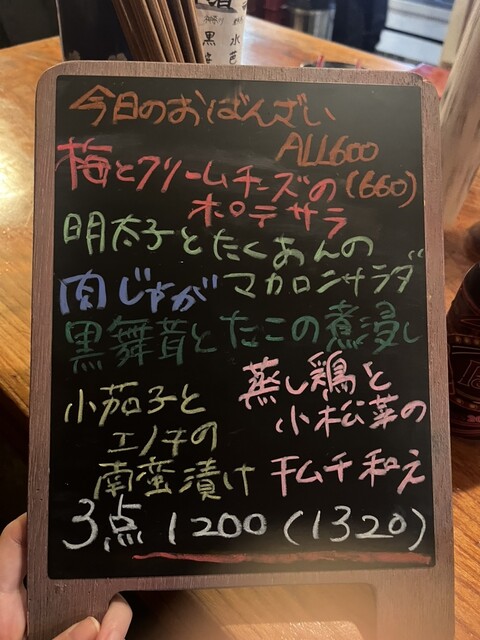 今日のおばんざい
ALL600
(660)
梅とクリームチーズの
ポテサラ
明太子とたくあんの
マカロンサラダ
肉じゃが
黒舞茸とたこの煮浸し
蒸し鶏と
小松菜の
キムチ和え
小茄子と
エノキの
南蛮漬け
3点 1200(1320)